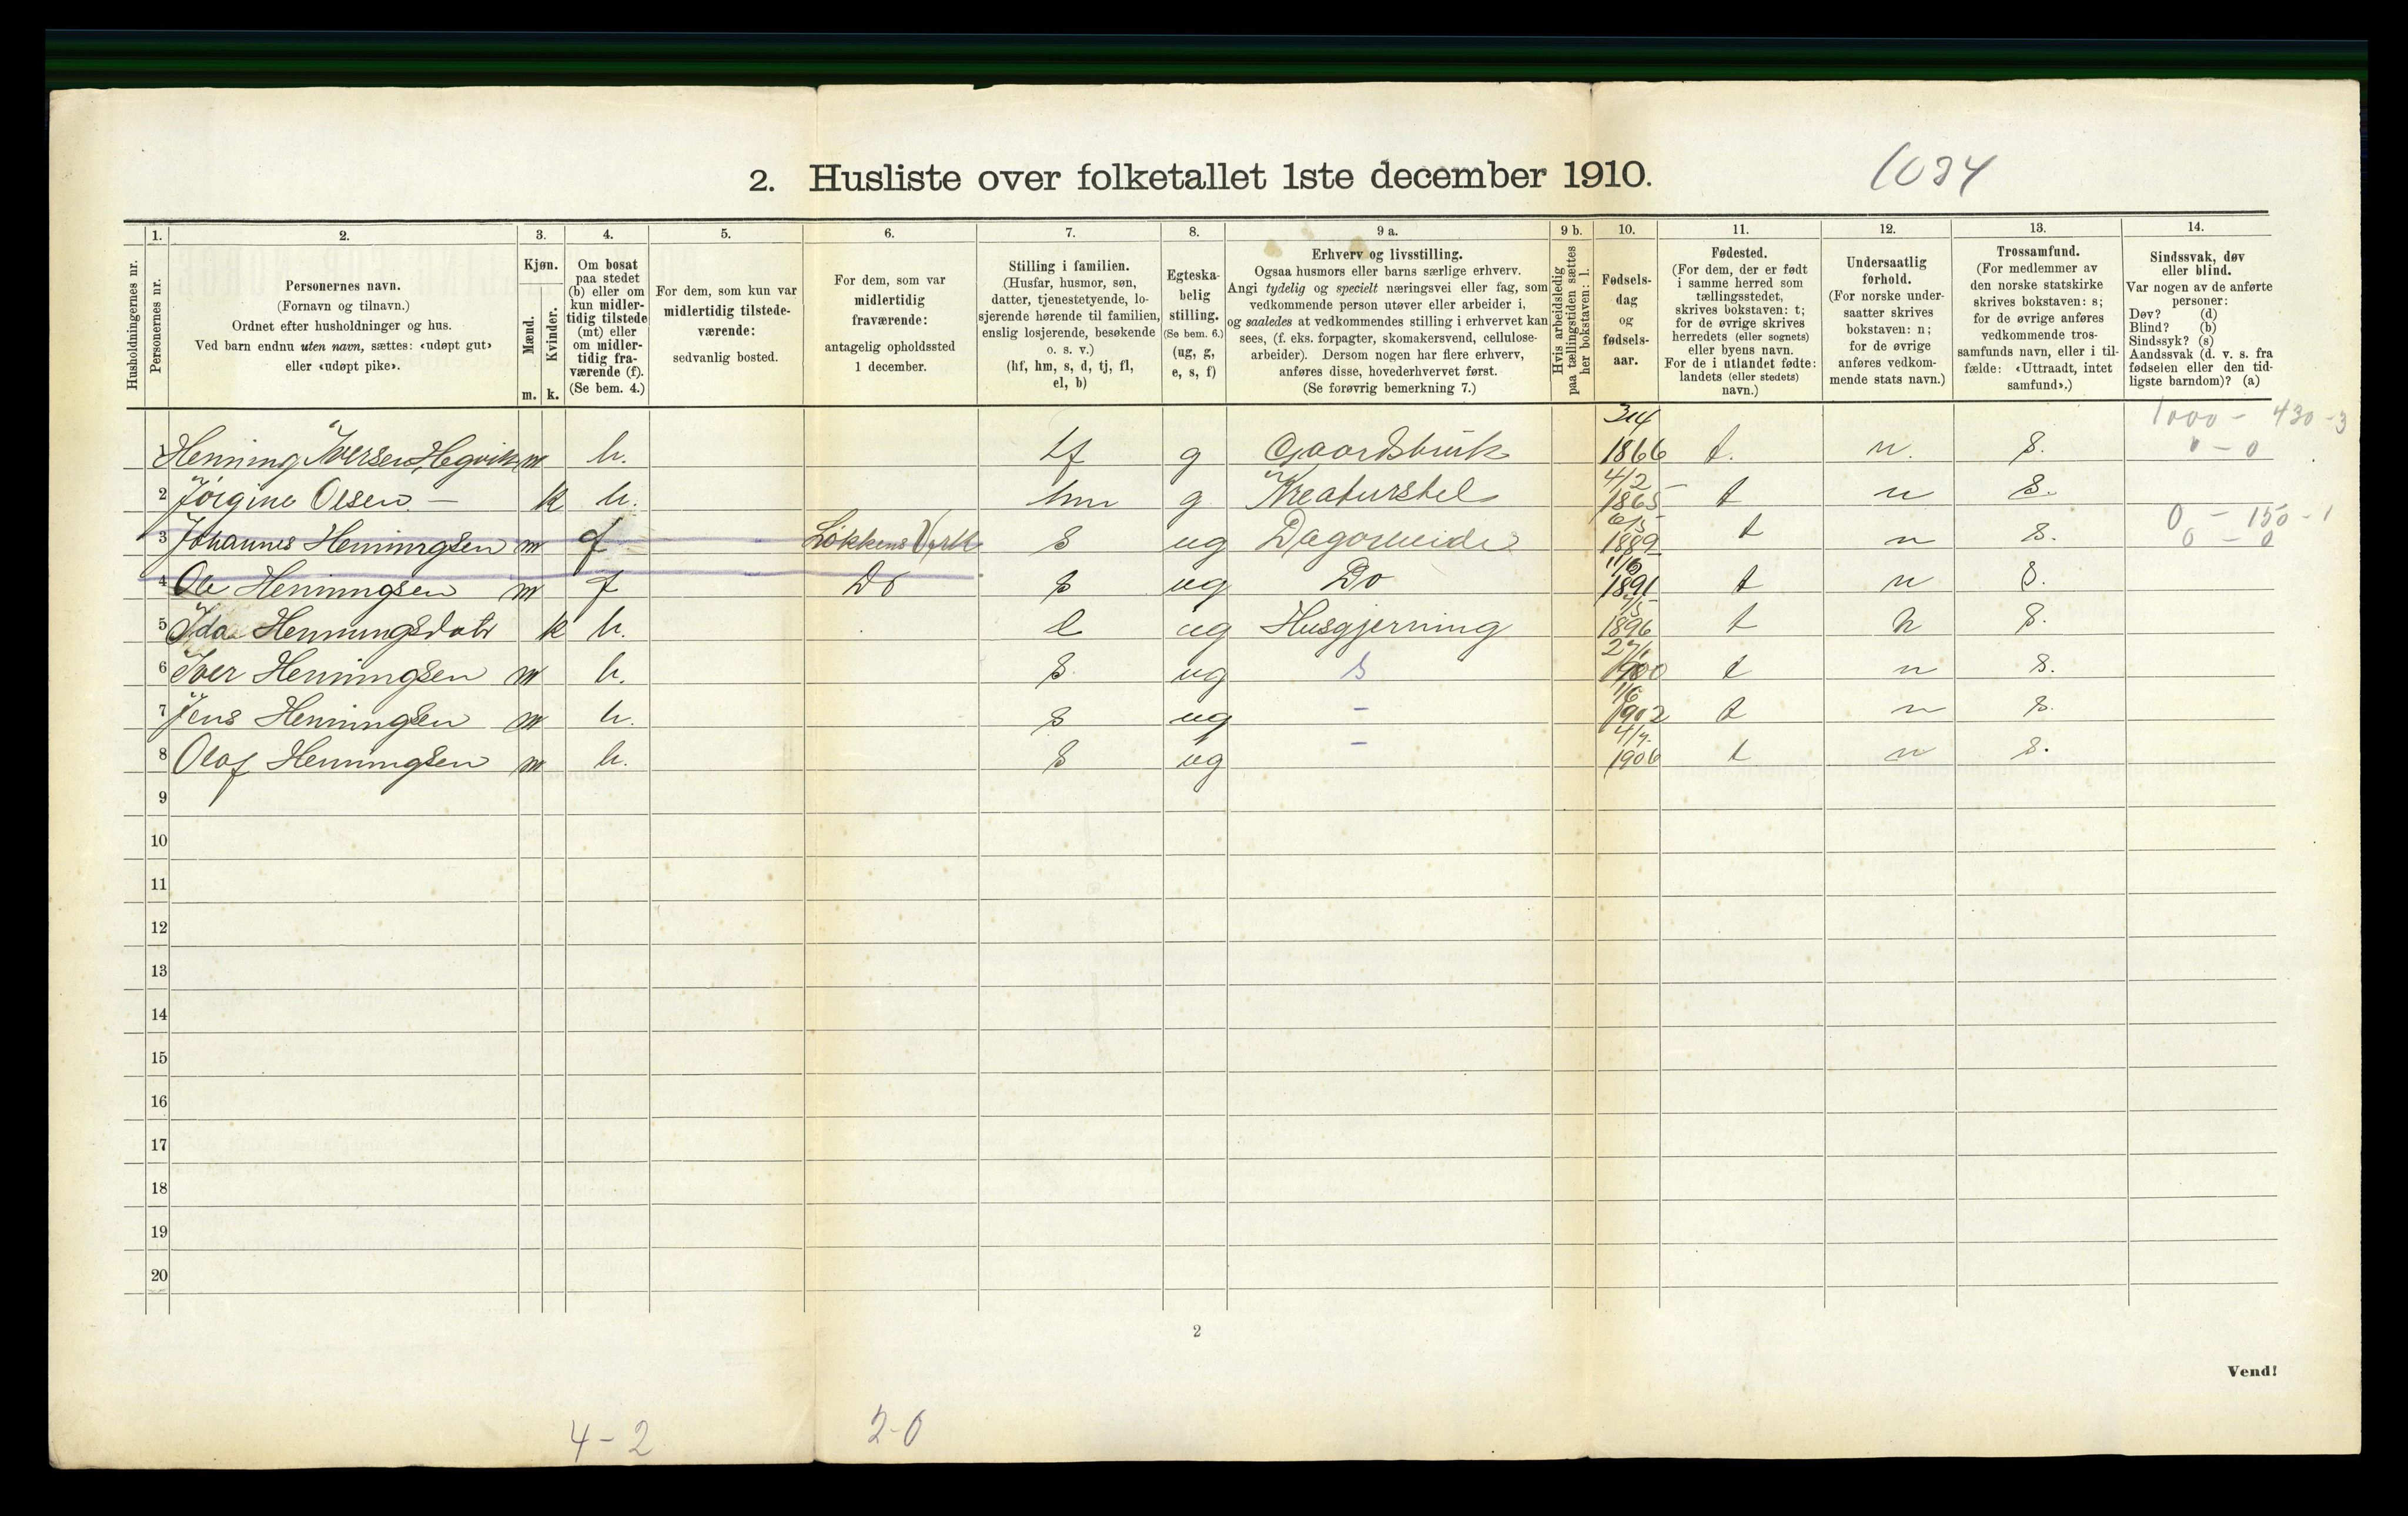 2. Husliste over folketallet 1ste december 1910.
1094
1.
2.
3.
4.
5.
6.
7.
8.
9 a.
9 b.
10.
11.
12.
13.
14.
Husholdningernes nr.
Personernes nr.
Personernes navn.
(Fornavn og tilnavn.)
Ordnet efter husholdninger og hus.
Ved barn endnu uten navn, sættes: «udøpt gut»
eller «udøpt pike».
Kjøn.
Mænd.
Kvinder.
m. k.
Om bosat
paa stedet
(b) eller om
kun midler-
tidig tilstede
(mt) eller
om midler-
tidig fra-
værende (f).
(Se bem. 4.)
For dem, som kun var
midlertidig tilstede-
værende:
sedvanlig bosted.
For dem, som var
midlertidig
fraværende:
antagelig opholdssted
1 december.
Stilling i familien.
(Husfar, husmor, søn,
datter, tjenestetyende, lo-
sjerende hørende til familien,
enslig losjerende, besøkende
o. s. v.)
(hf, hm, s, d, tj, fl,
el, b)
Egteska-
belig
stilling.
(Se bem. 6.)
(ug, g,
e, s, f)
Erhverv og livsstilling.
Ogsaa husmors eller barns særlige erhverv.
Angi tydelig og specielt næringsvei eller fag, som
vedkommende person utøver eller arbeider i,
og saaledes at vedkommendes stilling i erhvervet kan
sees, (f. eks. forpagter, skomakersvend, cellulose-
arbeider). Dersom nogen har flere erhverv,
anføres disse, hovederhvervet først.
(Se forøvrig bemerkning 7.)
Hvis arbeidsledig
paa tællingstiden sættes
her bokstaven: l.
Fødsels-
dag
og
fødsels-
aar.
Fødested.
(For dem, der er født
i samme herred som
tællingsstedet,
skrives bokstaven: t;
for de øvrige skrives
herredets (eller sognets)
eller byens navn.
For de i utlandet fødte:
landets (eller stedets)
navn.)
Undersaatlig
forhold.
(For norske under-
saatter skrives
bokstaven: n;
for de øvrige
anføres vedkom-
mende stats navn.)
Trossamfund.
(For medlemmer av
den norske statskirke
skrives bokstaven: s;
for de øvrige anføres
vedkommende tros-
samfunds navn, eller i til-
fælde: «Uttraadt, intet
samfund».)
Sindssvak, døv
eller blind.
Var nogen av de anførte
personer:
Døv? (d)
Blind? (b)
Sindssyk? (s)
Aandssvak (d. v. s. fra
fødselen eller den tid-
ligste barndom)? (a)
1000 - 430 - 3
0 - 0
1 Henning Iversen Hegvik m b. hf g Gaardsbruk 3/4 1866 t. n. s.
2 Jørgine Olsen - k b. hm g Kreaturstel 4/2 1865 t n s.
3 Johannes Henningsen m f Løkkens Verk s ug Dagarbeide 6/5 1889 t n s. 0 - 150 - 1
0 - 0
4 Ole Henningsen m f Do s ug Do 11/6 1891 t n s.
5 Ida Henningsdatr k b. d ug Husgjerning 1896 t n s.
6 Iver Henningsen m b. s ug s 27/1 1900 t n s.
7 Jens Henningsen m b. s ug - 1/6 1902 t n s.
8 Olaf Henningsen m b. s ug - 4/7. 1906 t n s.
9
10
11
12
13
14
15
16
17
18
19
20
2
Vend!
4 - 2
2-0